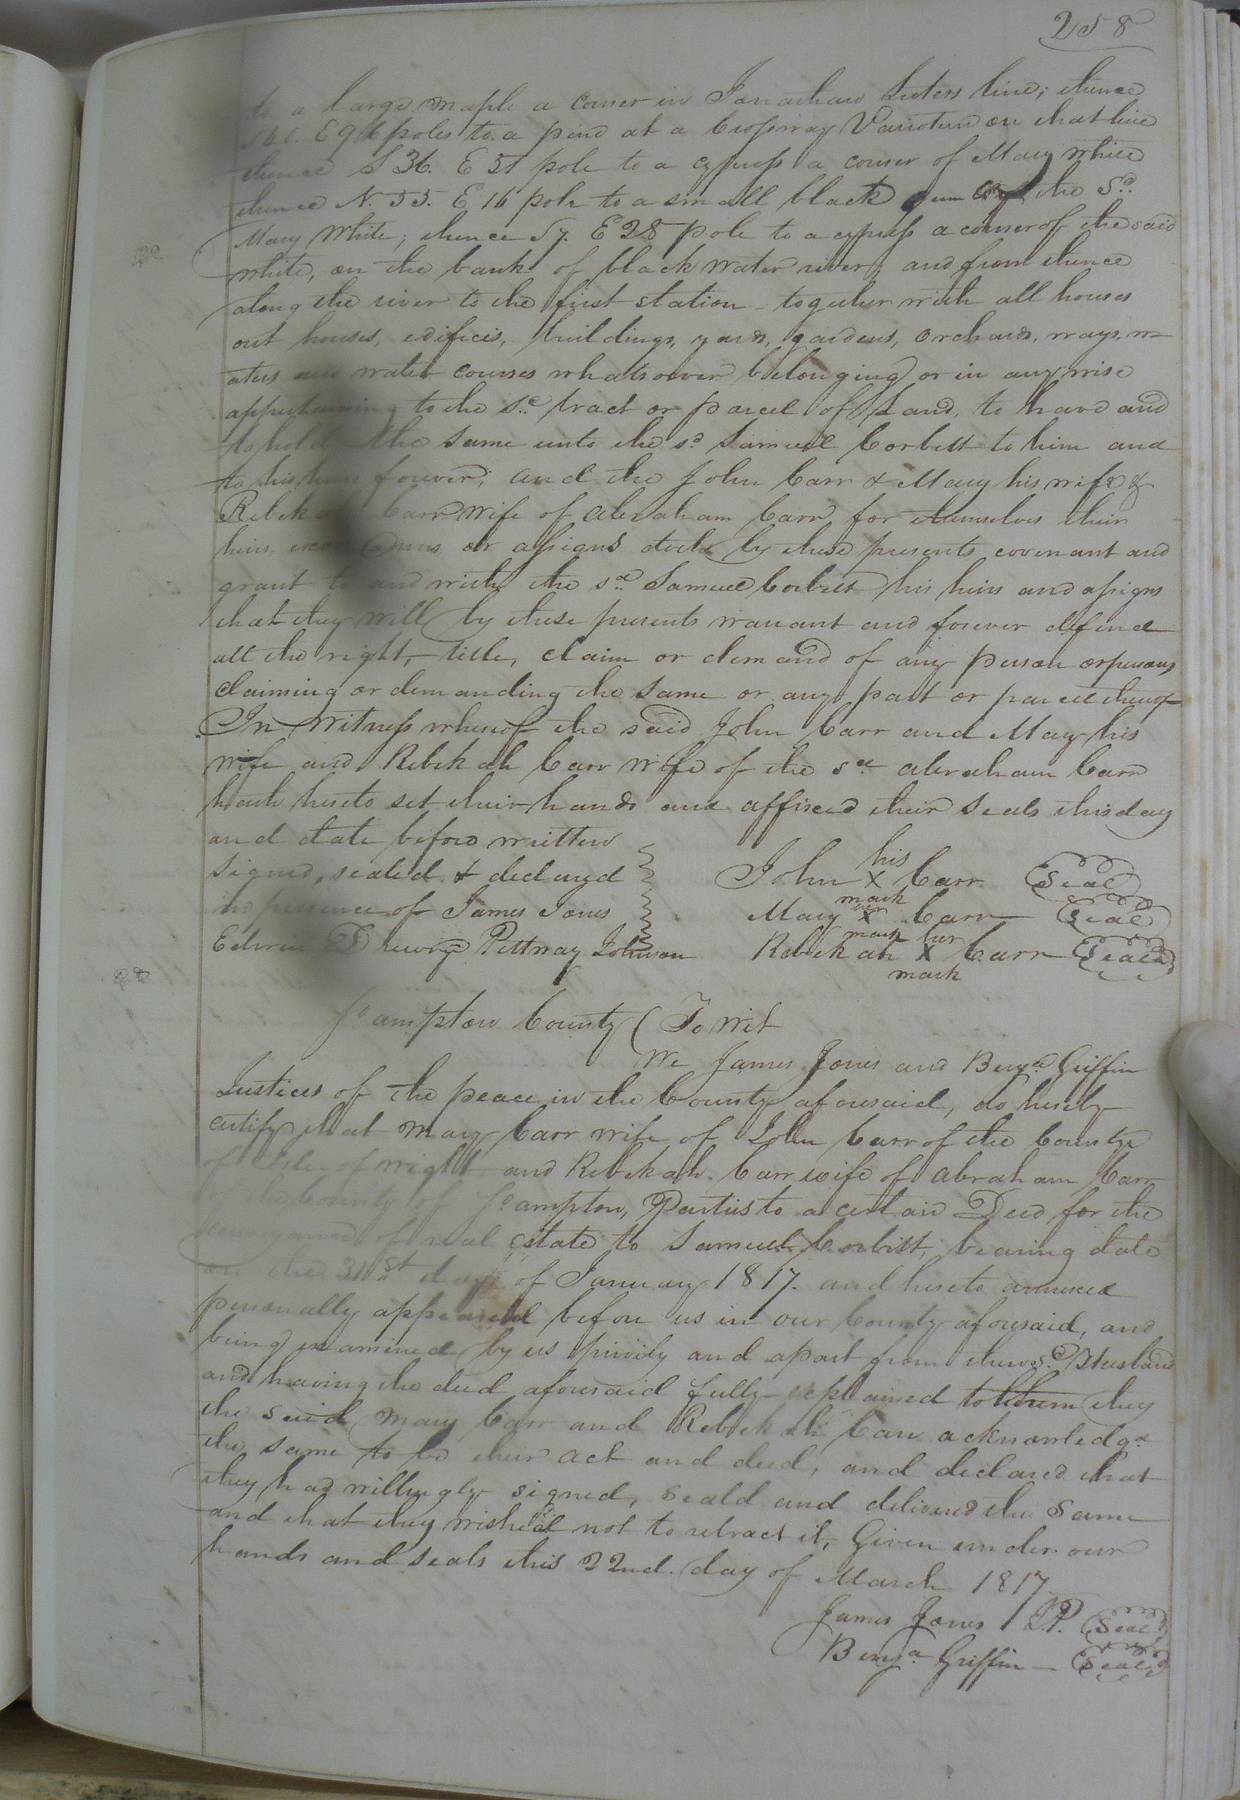 258
to a large maple a corner in Jonathan Luters line; thence
E 96 poles to a pine at a Crossway Variation on that line
thence S 36. E 51 pole to a cypress a corner of Mary White
thence N. 55. E 16 pole to a small black gum the Sd
Mary White; thence S 7. E 28 pole to a cypress a corner of the said
white, on the bank of black water river; and from thence
along the river to the first station together with all houses
out houses, edifices, buildings, yards, gardens, orchards, ways, w
aters and water courses whatsoever belonging or in any wise
appertaining to the sd tract or parcel of Land, to have and
to hold the same unto the sd Samuel Corbitt to him and
to his heirs forever; and the John Carr & Mary his wife &
Rebekah Carr wife of Abraham Carr for themselves their
heirs, exors admrs or assigns doth by these presents covenant and
grant to and with the sd Samuel Corbitt his heirs and assigns
that they will by these presents warrant and forever defend
all the right, title, claim or demand of any person or persons
claiming or demanding the same or any part or parcel thereof
In Witness whereof the said John Carr and Mary his
wife and Rebekah Carr wife of the sd Abraham Carr
hath hereto set their hands and affixed their seals this day
and date before written
signed, sealed & declared
in presence of James Jones
Edwin Drewry Pettway Johnson
John his X mark Carr Seal
Mary her X mark Carr Seal
Rebekah her X mark Carr Seal
So ampton County ( To Wit
We James Jones and Benja Griffin
Justices of the peace in the County aforesaid, do hereby
certify that Mary Carr wife of John Carr of the County
of Isle of Wight and Rebekah Carr wife of Abraham Carr
County of So ampton, Parties to a certain Deed for the
conveyance of real estate to Samuel Corbitt, bearing date
on the 31st day of January 1817. and hereto annexed
personally appeared before us in our County aforesaid, and
being examined by us privily and apart from their sd Husband
and having the deed aforesaid fully explained to them they
the said Mary Carr and Rebekah Carr acknowledgd
the same to be their act and deed, and declared that
they had willingly signed, seald and delivered the same
and that they wished not to retract it, Given under our
hands and seals this 22nd. day of March 1817
James Jones J.P. Seal
Benja Griffin Seal